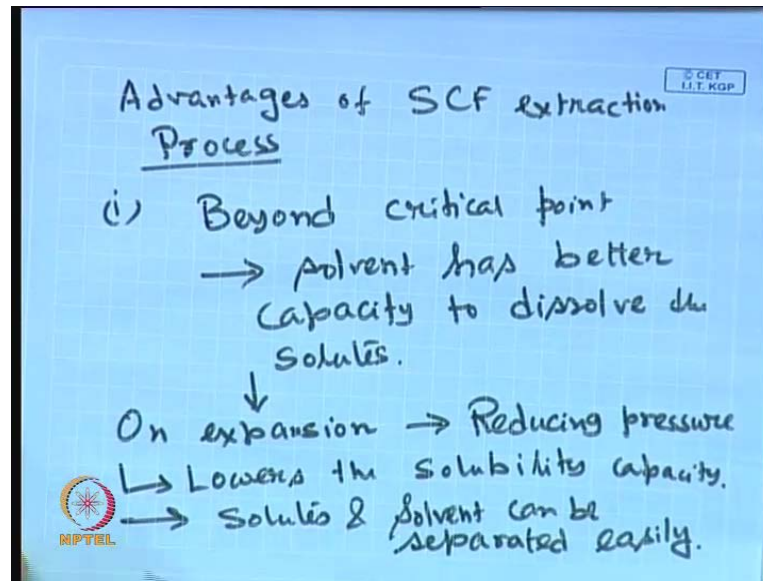 © CET
I.I.T. KGP
Advantages of SCF extraction
Process
(i) Beyond critical point
→ solvent has better
capacity to dissolve the
solutes.
↓
On expansion → Reducing pressure
↳ Lowers the solubility capacity.
→ Solutes & Solvent can be
separated easily.
NPTEL